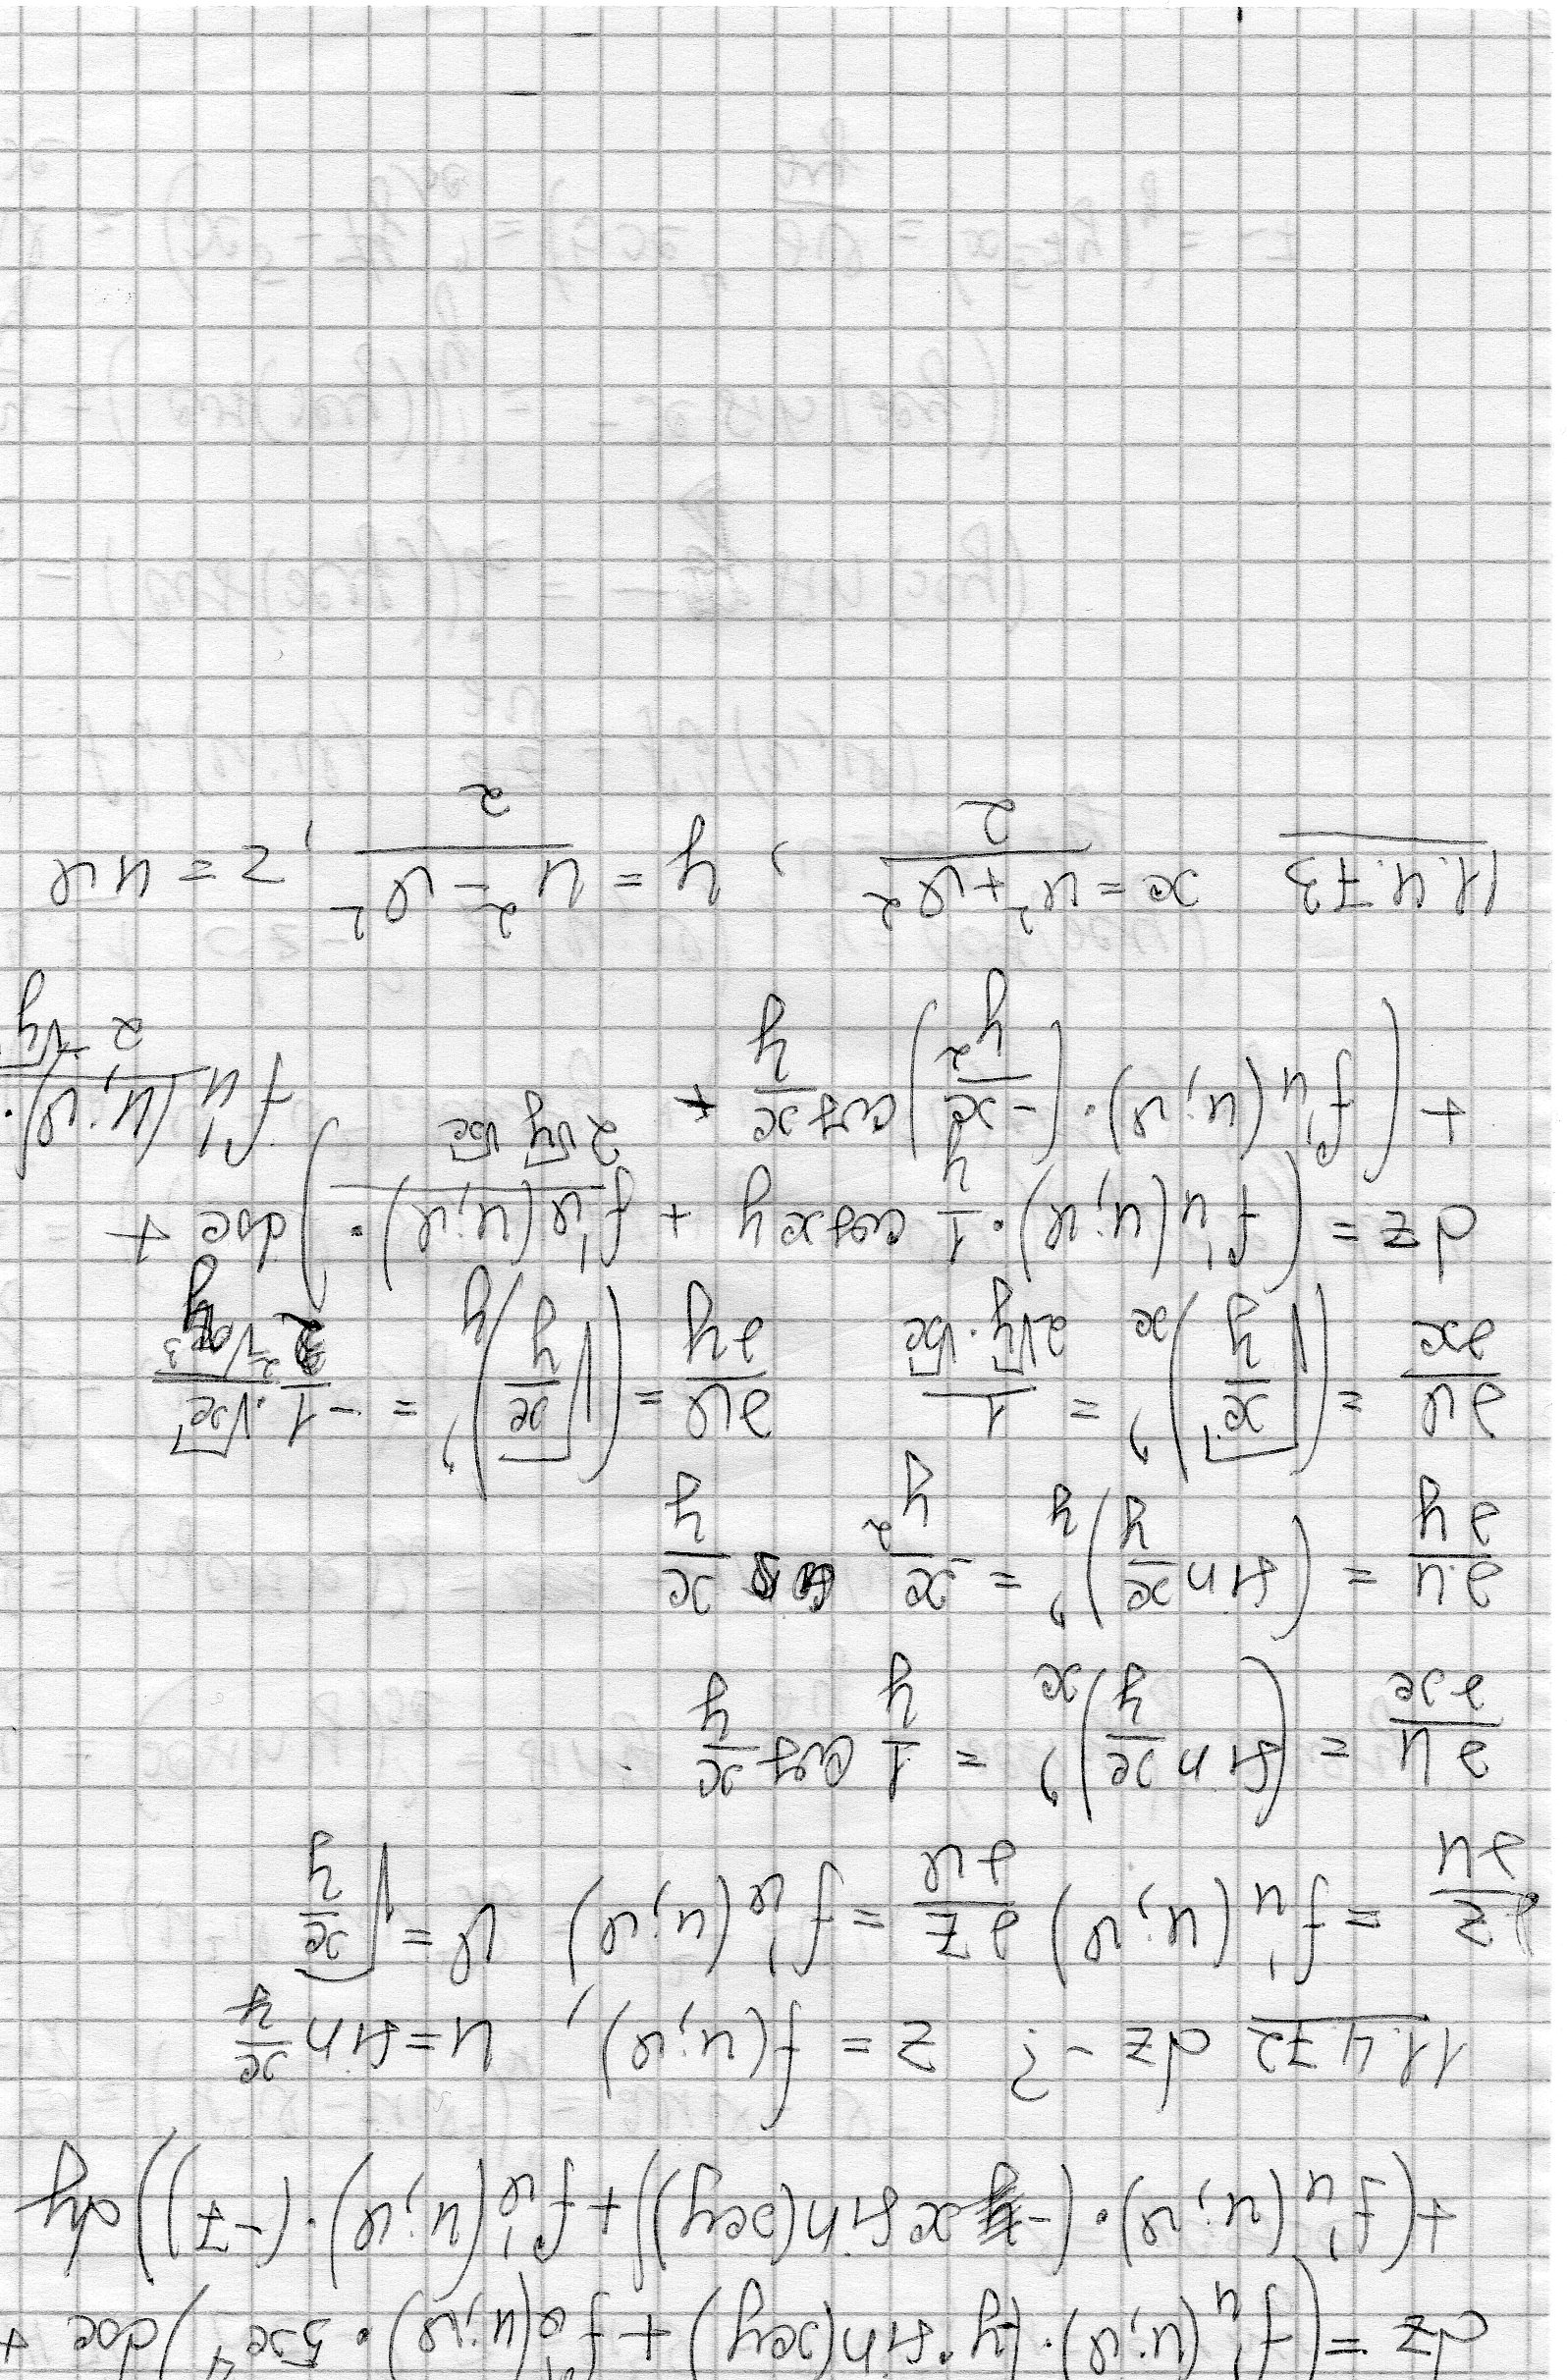 dz = (f'u(u;v)·(-y·sin(xy) + f'v(u;v)·5x⁴)dx +
+(f'u(u;v)·(-x sin(xy)) + f'v(u;v)·(-7))dy
11.4.72 dz-? z = f(u;v), u = sin x/y
∂z/∂u = f'u(u;v) ∂z/∂v = f'v(u;v) v = √(x/y)
∂u/∂x = (sin x/y)'x = 1/y cos x/y
∂u/∂y = (sin x/y)'y = -x/y² cos x/y
∂v/∂x = (√(x/y))'x = 1/(2√y·√x) ∂v/∂y = (√(x/y))'y = -1/2·√x/²√y³
dz = (f'u(u;v)·1/y cos xy + f'v(u;v)·/(2√y √x))dx +
+(f'u(u;v)·(-x/y²)cos x/y + f'u(u;v)·/2√y
11.4.73 x = (u²+v²)/2, y = (u²-v²)/2, z = uv